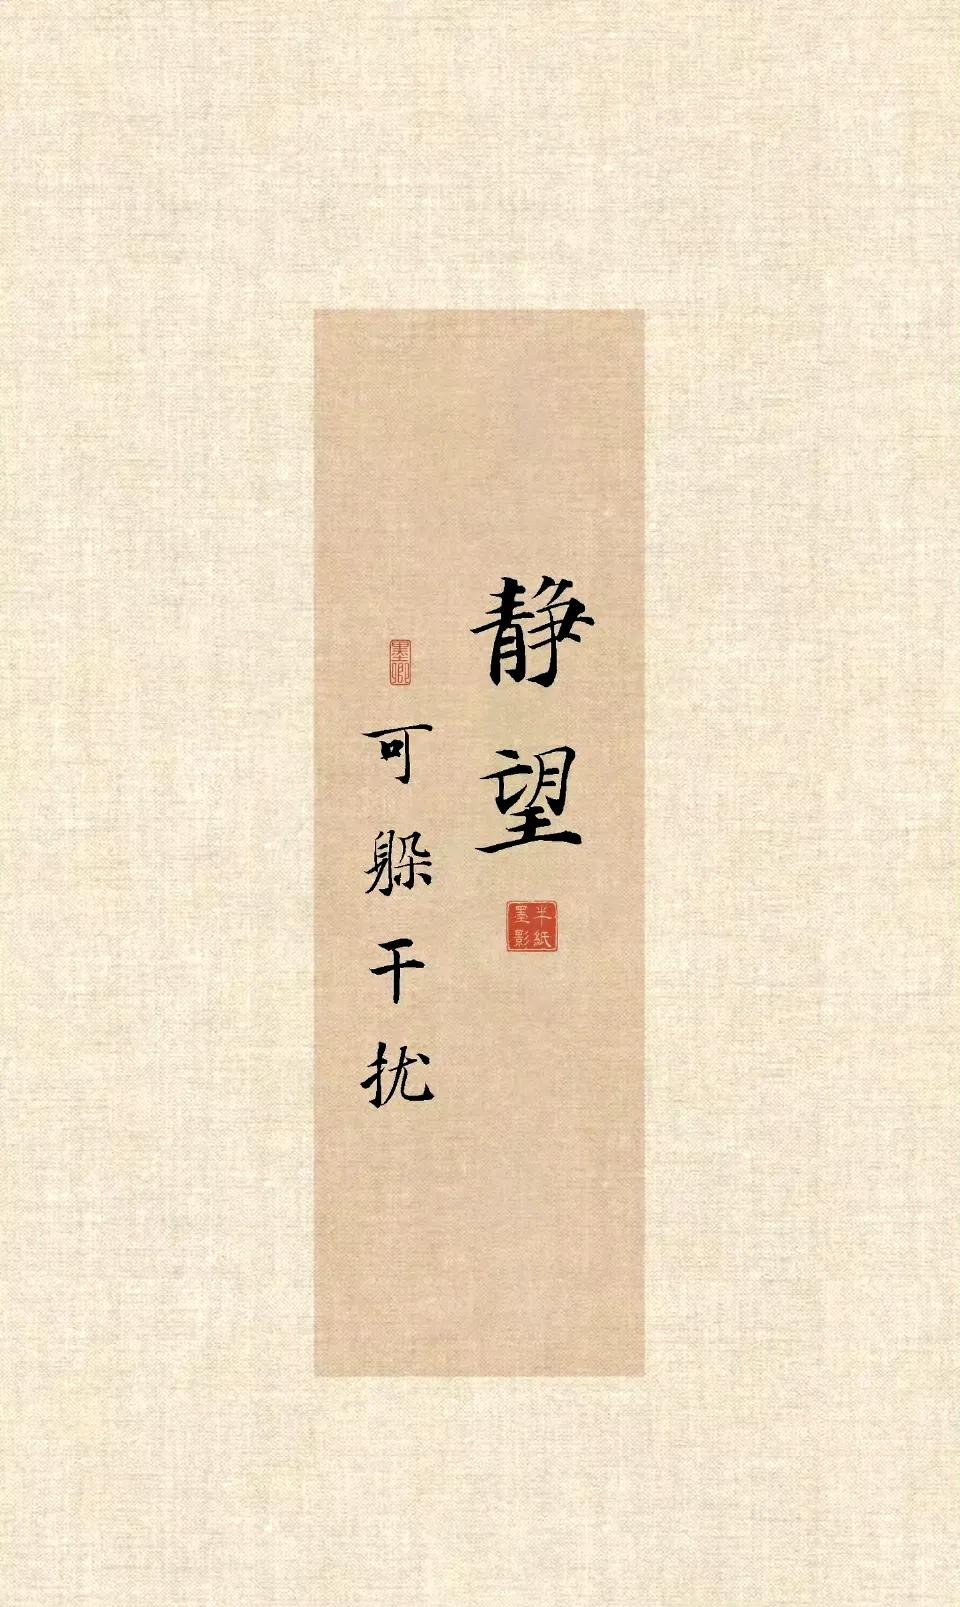 静望
半紙
墨影
墨卿
可躲干扰